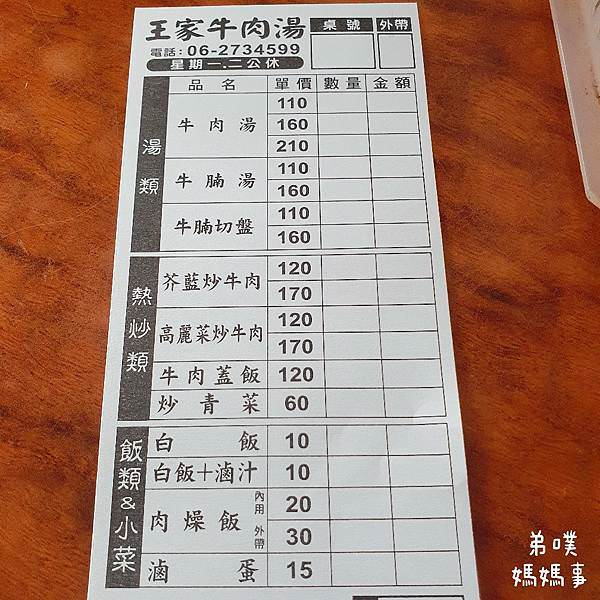 王家牛肉湯 桌號 外帶
電話:06-2734599
星期一.二公休
品名 單價 數量 金額
湯類
牛肉湯 110
160
210
牛腩湯 110
160
牛腩切盤 110
160
熱炒類
芥藍炒牛肉 120
170
高麗菜炒牛肉 120
170
牛肉蓋飯 120
炒青菜 60
飯類&小菜
白飯 10
白飯+滷汁 10
肉燥飯 內用 20
外帶 30
滷蛋 15
弟噗
媽媽事